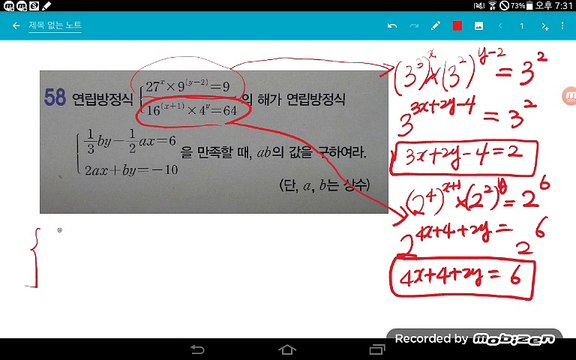 73% 오후 7:31
← 제목 없는 노트
1
58 연립방정식 { 27^x × 9^(y-2) = 9
16^(x+1) × 4^y = 64 의 해가 연립방정식
{ 1/3 by - 1/2 ax = 6
2ax + by = -10 을 만족할 때, ab의 값을 구하여라.
(단, a, b는 상수)
(3^3)^x × (3^2)^y-2 = 3^2
3^3x+2y-4 = 3^2
3x+2y-4 = 2
(2^4)^x+1 × (2^2)^y = 2^6
2^4x+4+2y = 2^6
4x+4+2y = 6
{
Recorded by Mobizen